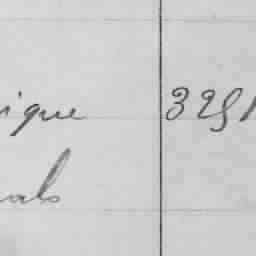 ique 329
als